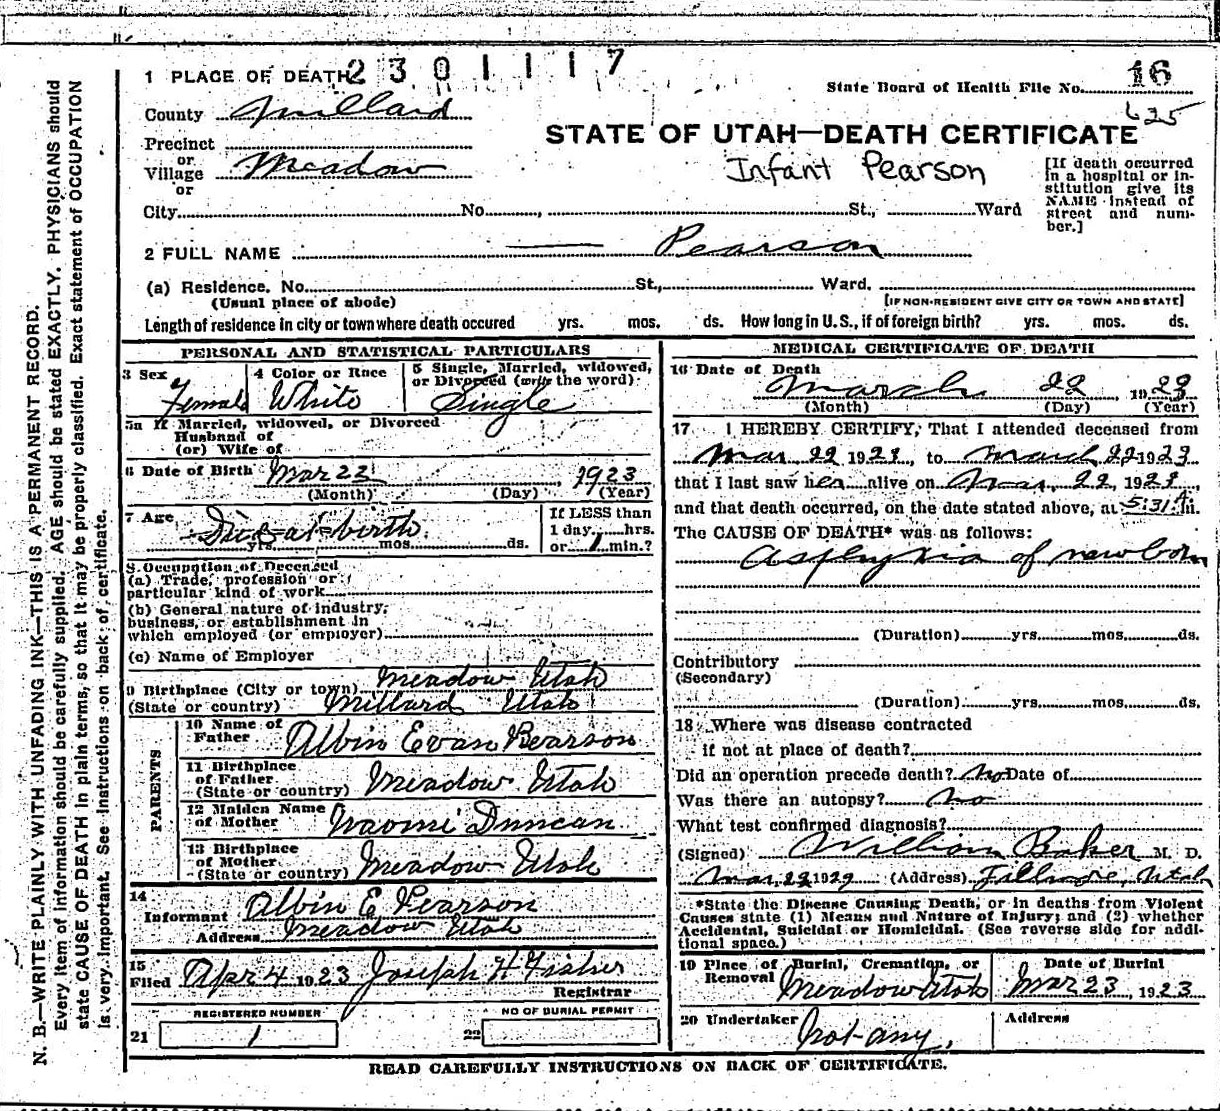 1 PLACE OF DEATH 2301117
State Board of Health File No. 16
625
County Millard
STATE OF UTAH—DEATH CERTIFICATE
Precinct
or
Village Meadow
or
Infant Pearson
[If death occurred
in a hospital or in-
stitution give its
NAME instead of
street and num-
ber.]
City No. , St., Ward
2 FULL NAME —— Pearson
(a) Residence. No. St., Ward.
(Usual place of abode) [IF NON-RESIDENT GIVE CITY OR TOWN AND STATE]
Length of residence in city or town where death occured yrs. mos. ds. How long in U. S., if of foreign birth? yrs. mos. ds.
PERSONAL AND STATISTICAL PARTICULARS
3 Sex Female
4 Color or Race White
5 Single, Married, widowed,
or Divorced (write the word)
Single
5a If Married, widowed, or Divorced
Husband of
(or) Wife of
6 Date of Birth Mar 23, 1923
(Month) (Day) (Year)
7 Age Died at birth
yrs. mos. ds.
If LESS than
1 day, hrs.
or 1 min.?
8. Occupation of Deceased
(a) Trade, profession or
particular kind of work
(b) General nature of industry,
business, or establishment in
which employed (or employer)
(c) Name of Employer
9 Birthplace (City or town) Meadow Utah
(State or country) Millard Utah
PARENTS
10 Name of
Father Albin Evan Pearson
11 Birthplace
of Father
(State or country) Meadow Utah
12 Maiden Name
of Mother Naomi Duncan
13 Birthplace
of Mother
(State or country) Meadow Utah
14
Informant Albin E Pearson
Address Meadow Utah
15
Filed Apr 4 1923 Joseph H Fisher
Registrar
REGISTERED NUMBER
21 1
NO OF BURIAL PERMIT
22
MEDICAL CERTIFICATE OF DEATH
16 Date of Death
March 22, 1923
(Month) (Day) (Year)
17 I HEREBY CERTIFY, That I attended deceased from
Mar 22 1923, to March 22 1923
that I last saw her alive on Mar. 22, 1923,
and that death occurred, on the date stated above, at 5:31 A.m.
The CAUSE OF DEATH* was as follows:
Asphyxia of newborn
(Duration) yrs. mos. ds.
Contributory
(Secondary)
(Duration) yrs. mos. ds.
18 Where was disease contracted
if not at place of death?
Did an operation precede death? No Date of
Was there an autopsy? No
What test confirmed diagnosis?
(Signed) William Baker M. D.
Mar, 22 1923 (Address) Fillmore, Utah
*State the Disease Causing Death, or in deaths from Violent
Causes state (1) Means and Nature of Injury; and (2) whether
Accidental, Suicidal or Homicidal. (See reverse side for addi-
tional space.)
19 Place of Burial, Cremation, or
Removal Meadow Utah
Date of Burial
Mar 23, 1923
20 Undertaker Not any.
Address
READ CAREFULLY INSTRUCTIONS ON BACK OF CERTIFICATE.
N. B.—WRITE PLAINLY WITH UNFADING INK—THIS IS A PERMANENT RECORD.
Every item of information should be carefully supplied. AGE should be stated EXACTLY. PHYSICIANS should
state CAUSE OF DEATH in plain terms, so that it may be properly classified. Exact statement of OCCUPATION
is very important. See instructions on back of certificate.